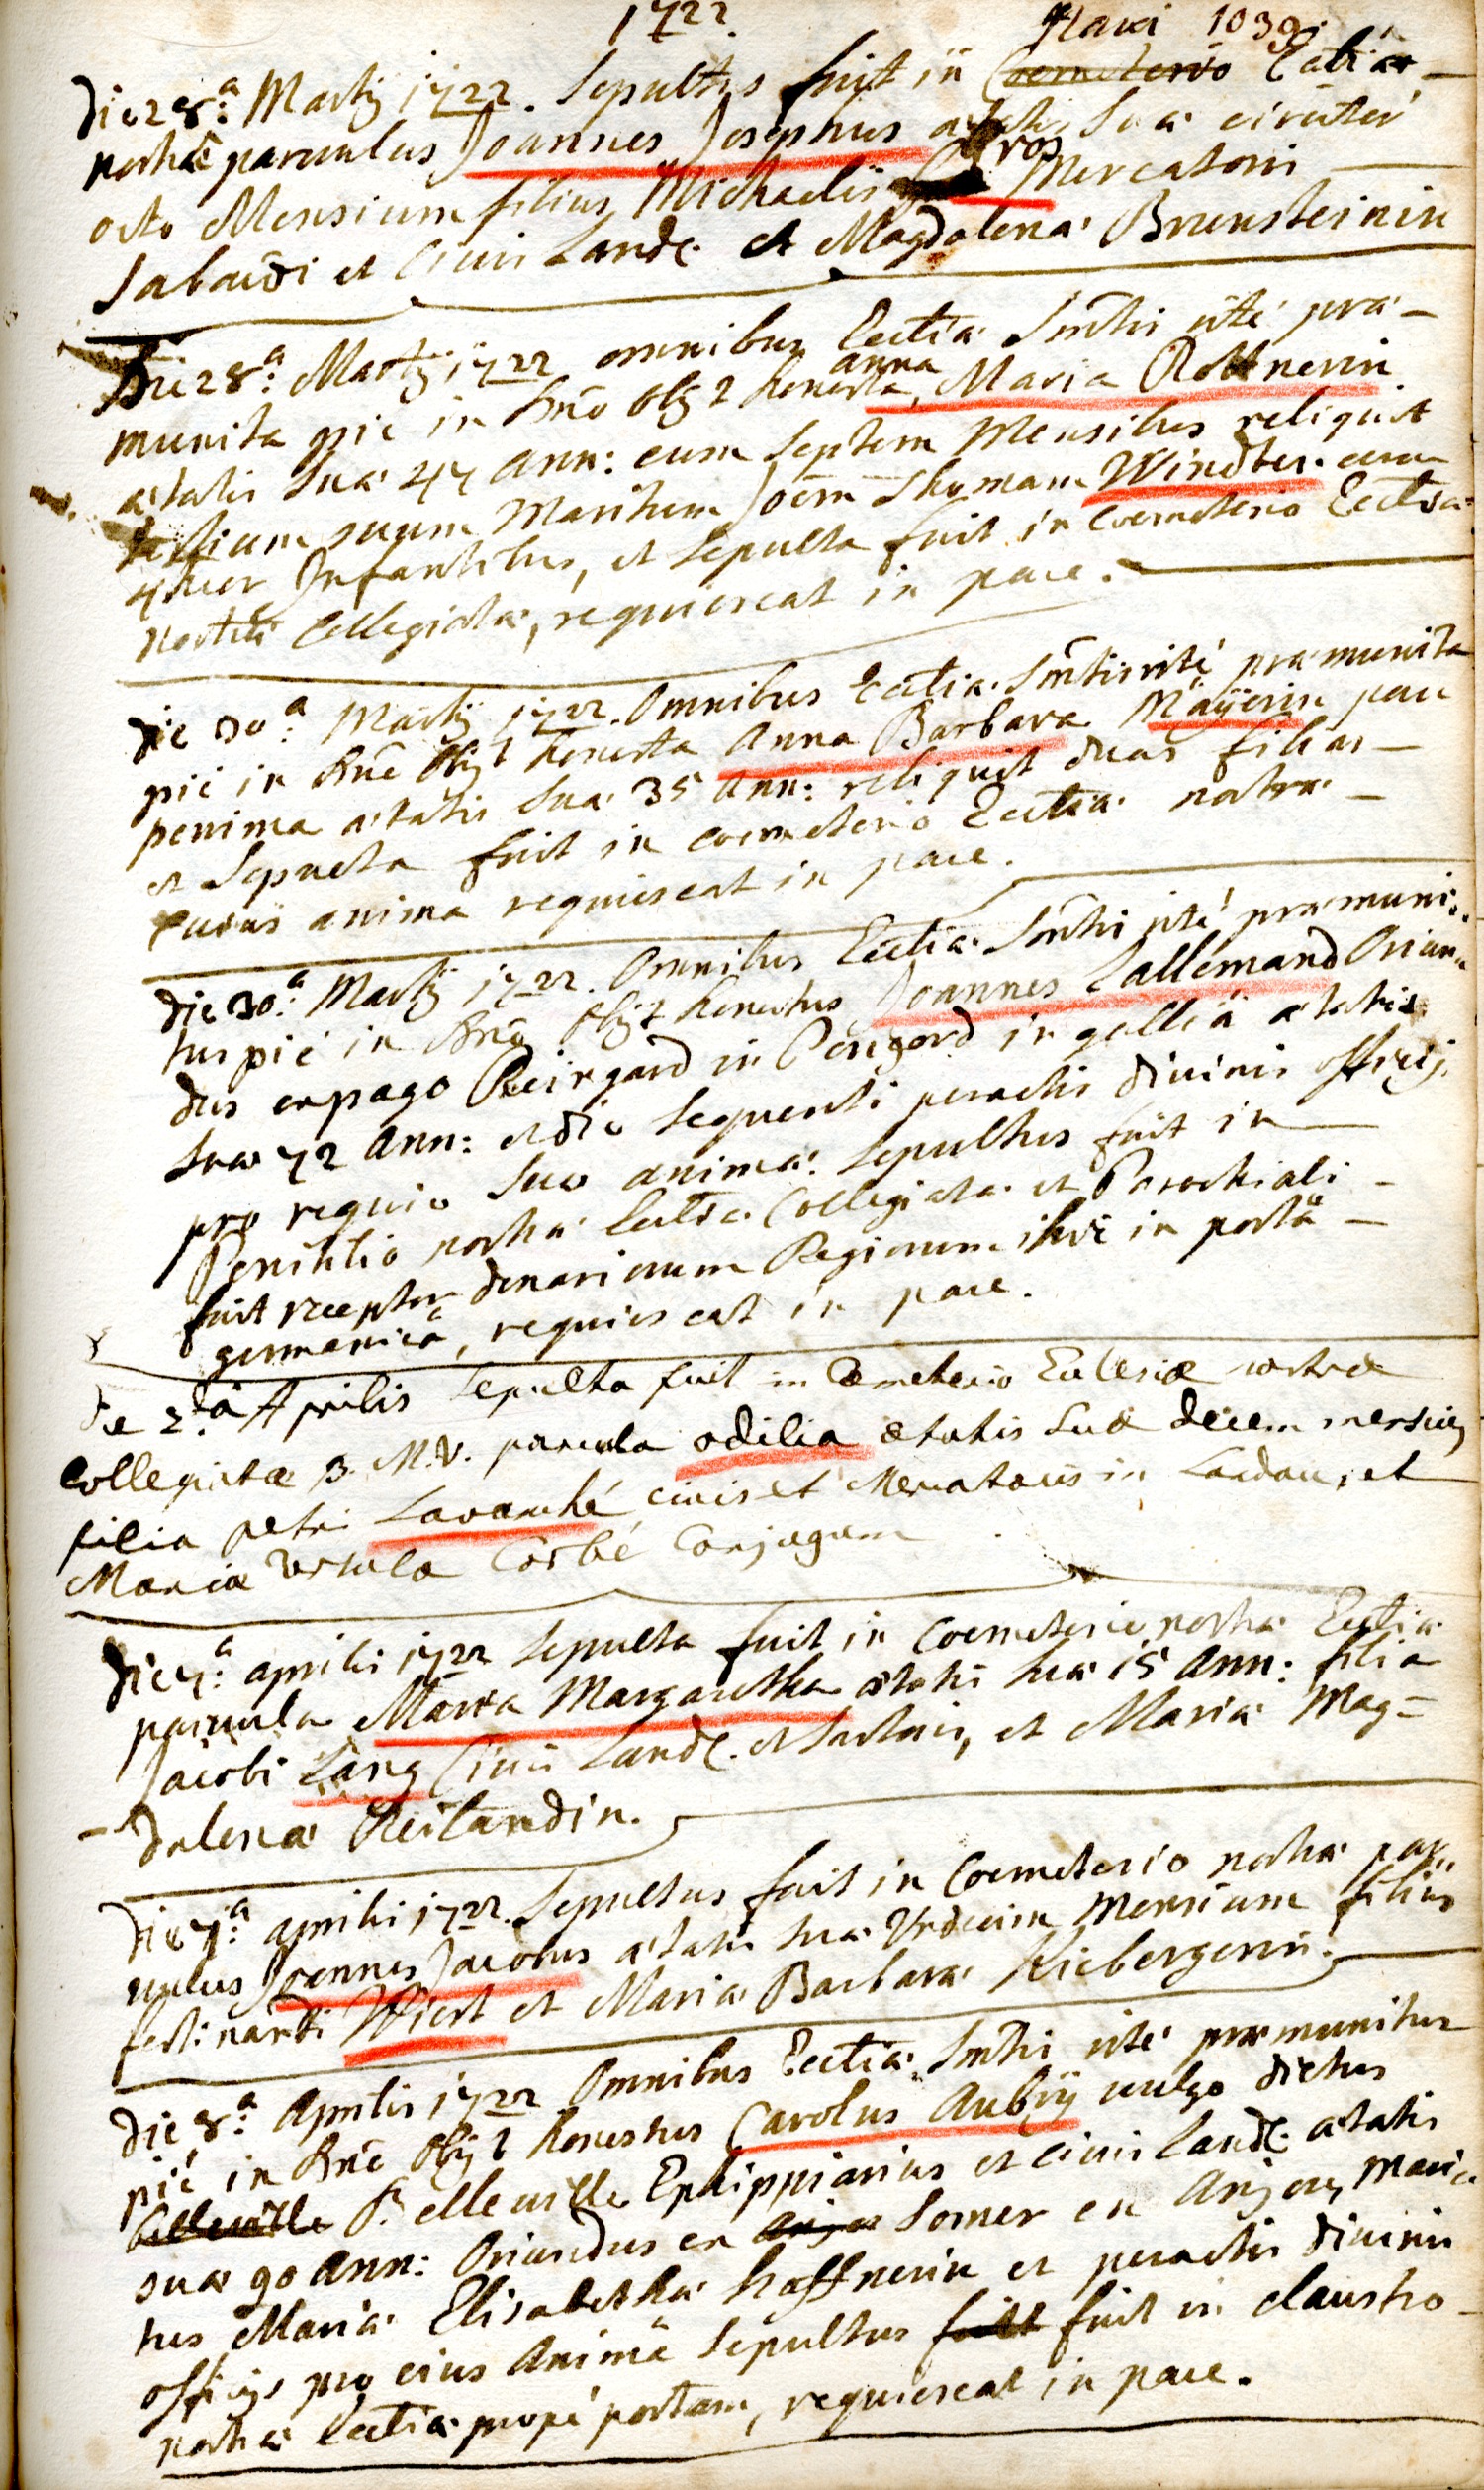 1722.
die 28.a Martij 1722. Sepultus fuit in Coemeterio Ectiae
nostrae parvulus Joannes Josephus aetatis Suae circiter
octo Mensium filius Michaelis Gros Mercatoris
Sabaudi et Civis Land. et Magdalena Brunsteinin
Die 28.a Martij 1722 omnibus Ectiae Smtis rite prae-
munita pie in Dno Obijt honesta anna Maria Rottnerin
aetatis Suae 44 Ann: cum Septem Mensibus reliquit
tertium suum Maritum Joem Thomam Windter cum
4tuor Infantibus, et Sepulta fuit in coemeterio Ectiae
nostrae Collegiatae, requiescat in pace.
Die 30.a Martij 1722. Omnibus Ectiae Smtis rite praemunita
pie in Dno Obijt honesta Anna Barbara Mayerin
aetatis Suae 35 Ann: reliquit duas filias
et Sepulta fuit in coemeterio Ectiae nostrae
cuius anima requiescat in pace.
Die 30.a Martij 1722. Omnibus Ectiae Smtis rite praemuni-
tus pie in Dno Obijt honestus Joannes Lallemand Oriun-
dus ex pago Reirgard in Perigord in gallia aetatis
Suae 72 Ann: et die Sequenti peractis divinis officijs
pro requie Suae animae Sepultus fuit in
Peristilio nostrae Ectiae Collegiatae et Parochialis
fuit receptor denariorum Regiorum in porta
germanica, requiescat in pace.
die 2.da Aprilis Sepulta fuit in Cemeterio Eclesiae nostrae
Collegiatae B. M. V. parvula odilia aetatis Suae decem mensium
filia petri Lavanché civis et Mercatoris in Landau, et
Mariae Ursula Corbé Conjugum
Die 4.a aprilis 1722 Sepulta fuit in Coemeterio nostrae Ectiae
parvula Maria Margaretha aetatis Suae 15 Ann: filia
Jacobi Lang Civis Land. et Sartoris, et Maria Mag-
dalena Reilandin.
Die 7.a aprilis 1722. Sepultus fuit in Coemeterio nostrae par-
vulus Joannes Jacobus aetatis Suae Undecim Mensium filius
ferdinandi Wiert et Maria Barbara Kiebergerin.
Die 8.a Aprilis 1722 Omnibus Ectiae Smtis rite praemunitus
pie in Dno Obijt honestus Carolus Aubry vulgo dictus
Belleville Ephippiarius et Civis Land. aetatis
suae 90 Ann: Oriundus ex Somer en Anjou, mari-
tus Maria Elisabetha hoffnerin et peractis divinis
officijs pro eius Anima Sepultus fuit in claustro
nostrae Ectiae prope portam, requiescat in pace.